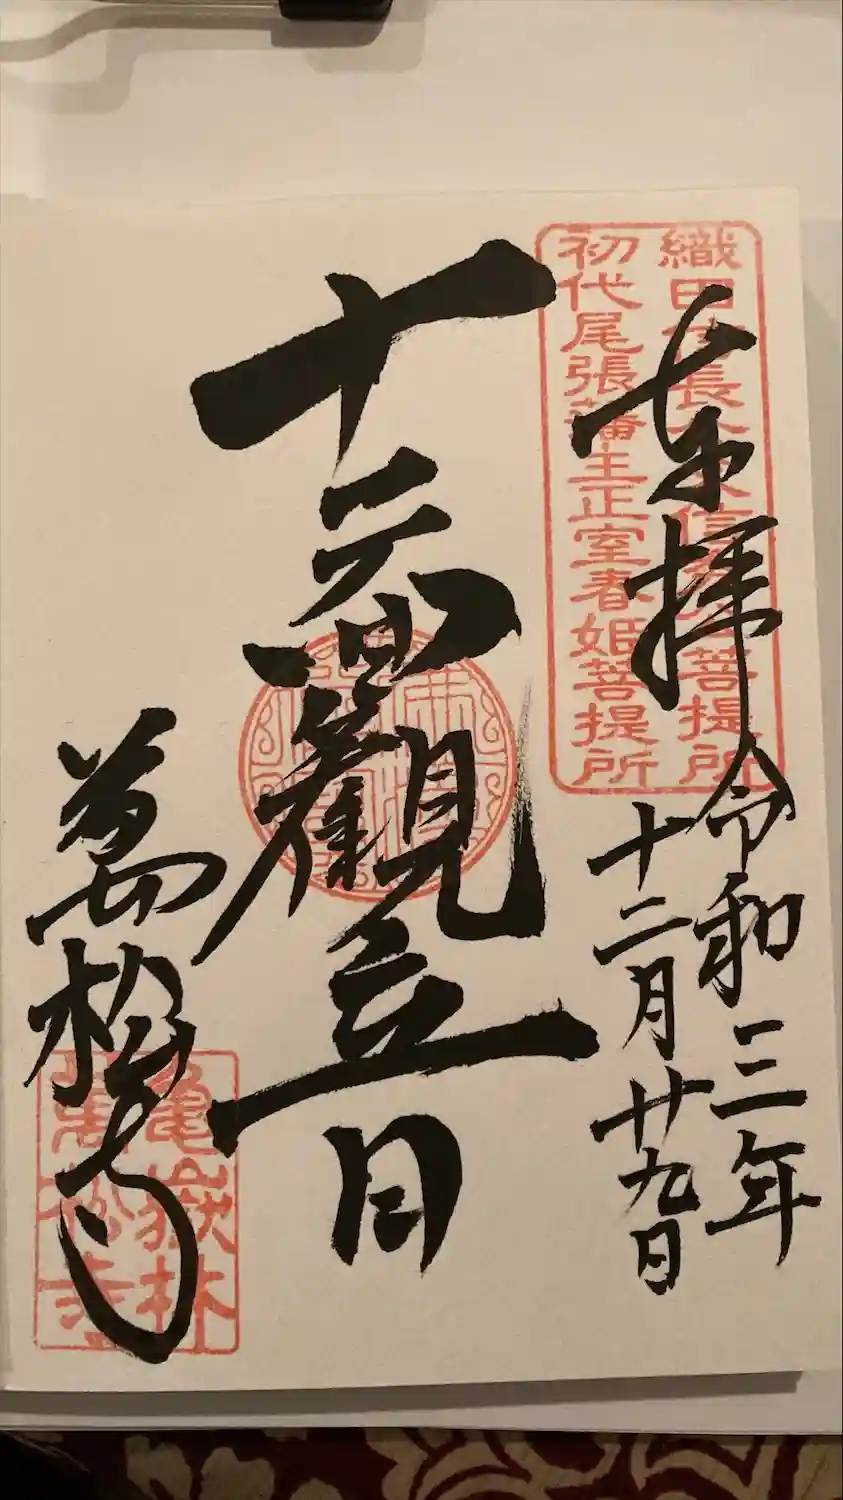 織田信長公父信秀公菩提所
初代尾張藩主正室春姫菩提所
奉拝
令和三年
十二月廿九日
十一面觀音
萬松寺
龜嶽林
萬松寺